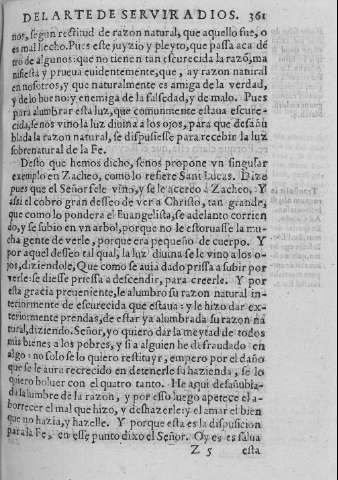 DEL ARTE DE SERVIR A DIOS. 361
nos, segun rectitud de razon natural, que aquello fue, o
es mal hecho. Pues este juyzio y pleyto, que passa acà dẽ
tro de algunos: que no tienen tan escurecida la razõ, ma
nifiesta y prueua euidentemente, que, ay razon natural
en nosotros, y que naturalmente es amiga de la verdad,
y de lo bueno: y enemiga de la falsedad, y de malo. Pues
para alumbrar esta luz, que comunmente estaua escure-
cida, se nos vino la luz diuina a los ojos, para que desañu
blada la razon natural, se dispusiesse para recebir la luz
sobrenatural de la Fe.
Desto que hemos dicho, se nos propone vn singular
exemplo en Zacheo, como lo refiere Sant Lucas. Dize
pues que el Señor se le vino, y se le acerco à Zacheo, Y
assi el cobro gran desseo de ver a Christo, tan grande,
que como lo pondera el Euangelista, se adelanto corrien
do, y se subio en vn arbol, porque no le estoruasse la mu
cha gente de verle, porque era pequeño de cuerpo. Y
por aquel desseo tal qual, la luz diuina se le vino a los o-
jos, diziendole, Que como se auia dado prissa a subir por
verle: se diesse priessa a descendir, para creerle. Y por
esta gracia preueniente, le alumbro su razon natural in-
teriormente de escurecida que estaua: y le hizo dar ex-
teriormente prendas, de estar ya alumbrada su razon na
tural, diziendo. Señor, yo quiero dar la meytad de todos
mis bienes a los pobres, y si a alguien he defraudado en
algo: no solo se lo quiero restituyr, empero por el daño
que se le aura recrecido en detenerle su hazienda, se lo
quiero boluer con el quatro tanto. He aqui desañubla-
da la lumbre de la razon, y por esso luego apetece el a-
borrecer el mal que hizo, y deshazerle: y el amar el bien
que no hazia, y hazelle. Y porque esta es la dispusicion
para la Fe, en esse punto dixo el Señor. Oy es es salua
Z 5 esta